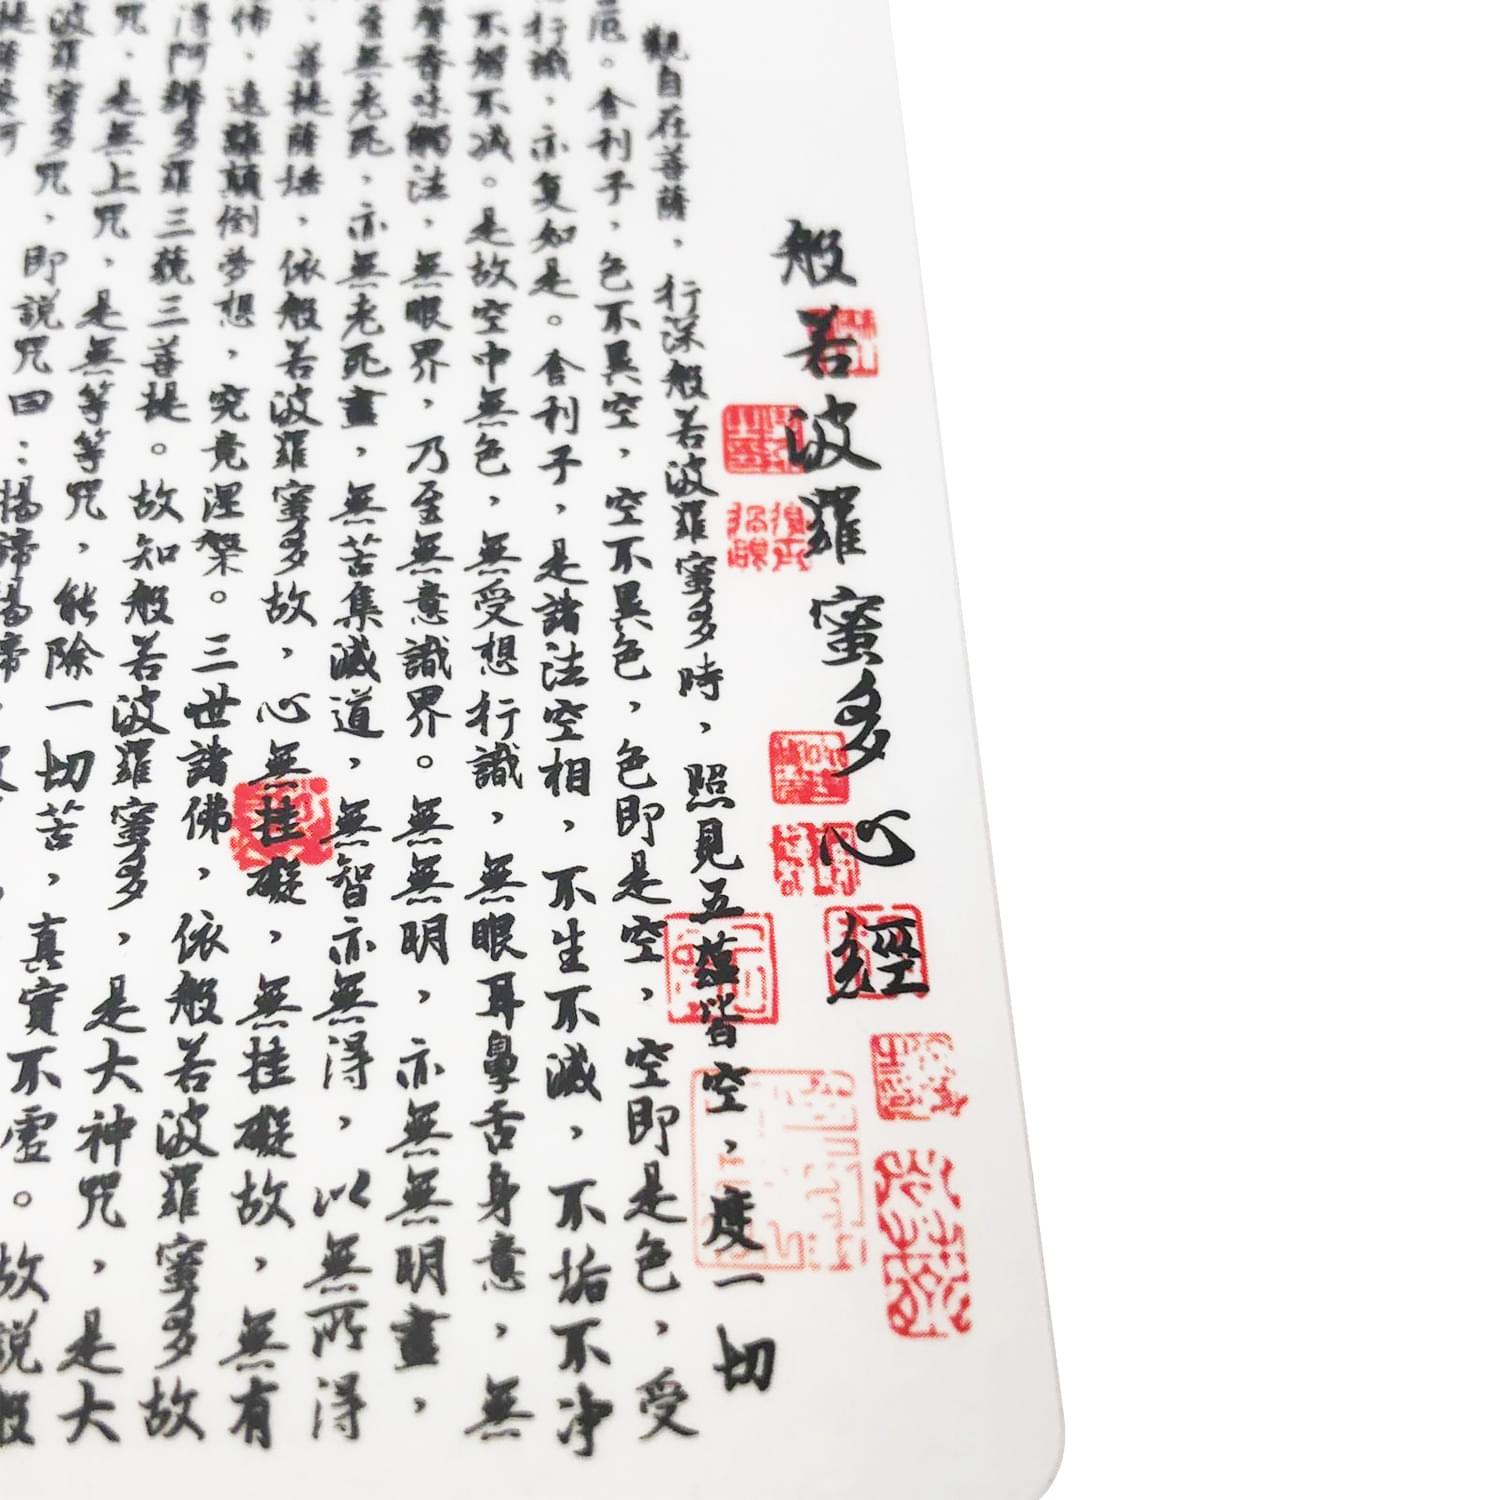 般若波羅蜜多心經
觀自在菩薩，行深般若波羅蜜多時，照見五蘊皆空，度一切
厄。舍利子，色不異空，空不異色，色即是空，空即是色，受
行識，亦复如是。舍利子，是諸法空相，不生不滅，不垢不净
不增不减。是故空中無色，無受想行識，無眼耳鼻舌身意，無
聲香味觸法，無眼界，乃至無意識界。無無明，亦無無明盡，
至無老死，亦無老死盡，無苦集滅道，無智亦無得，以無所得
菩提薩埵，依般若波羅蜜多故，心無挂礙，無挂礙故，無有
怖，遠離顛倒夢想，究竟涅槃。三世諸佛，依般若波羅蜜多故
得阿耨多羅三藐三菩提。故知般若波羅蜜多，是大神咒，是大
咒，是無上咒，是無等等咒，能除一切苦，真實不虛。故說般
波羅蜜多咒，即說咒曰：揭諦揭諦，波
提薩婆訶